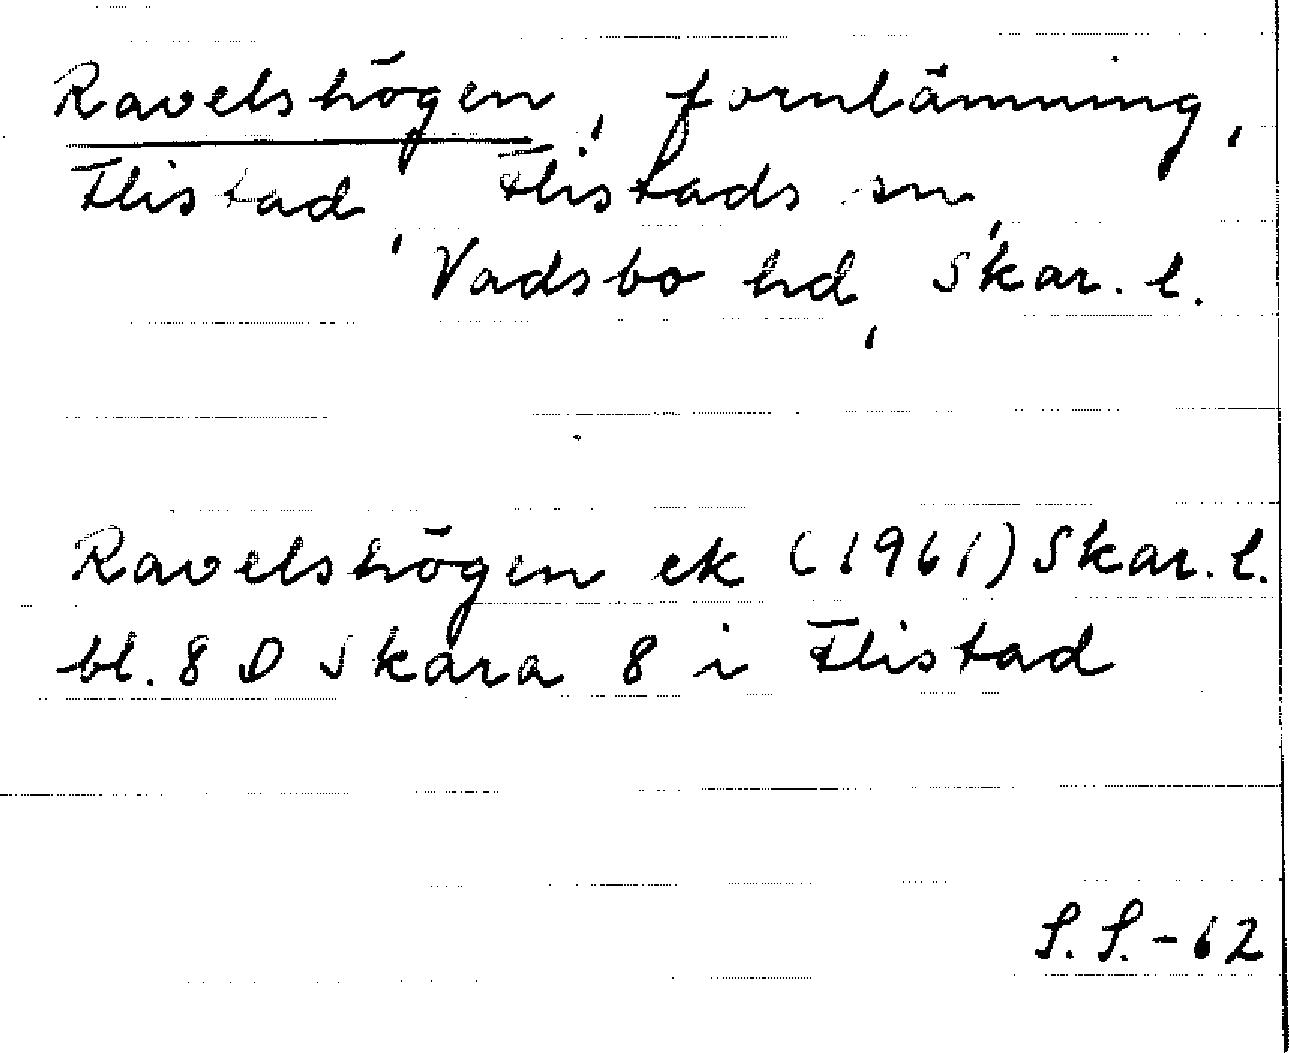 Ravelshögen, fornlämning,
Flistad, Flistads sn,
Vadsbo hd, Skar. l.
Ravelshögen ek (1961) Skar. l.
bl. 8 D Skara 8 i Flistad
S.S.-62